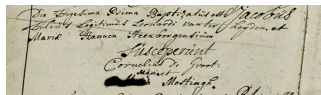 Die Trigesima Prima Baptizatus est Jacobus
Filius Legitimus Leonardi van ter Heyden et
Maria Haunen Heenbergensium
Susceperunt
Cornelius de Gwort.
Mostingh.